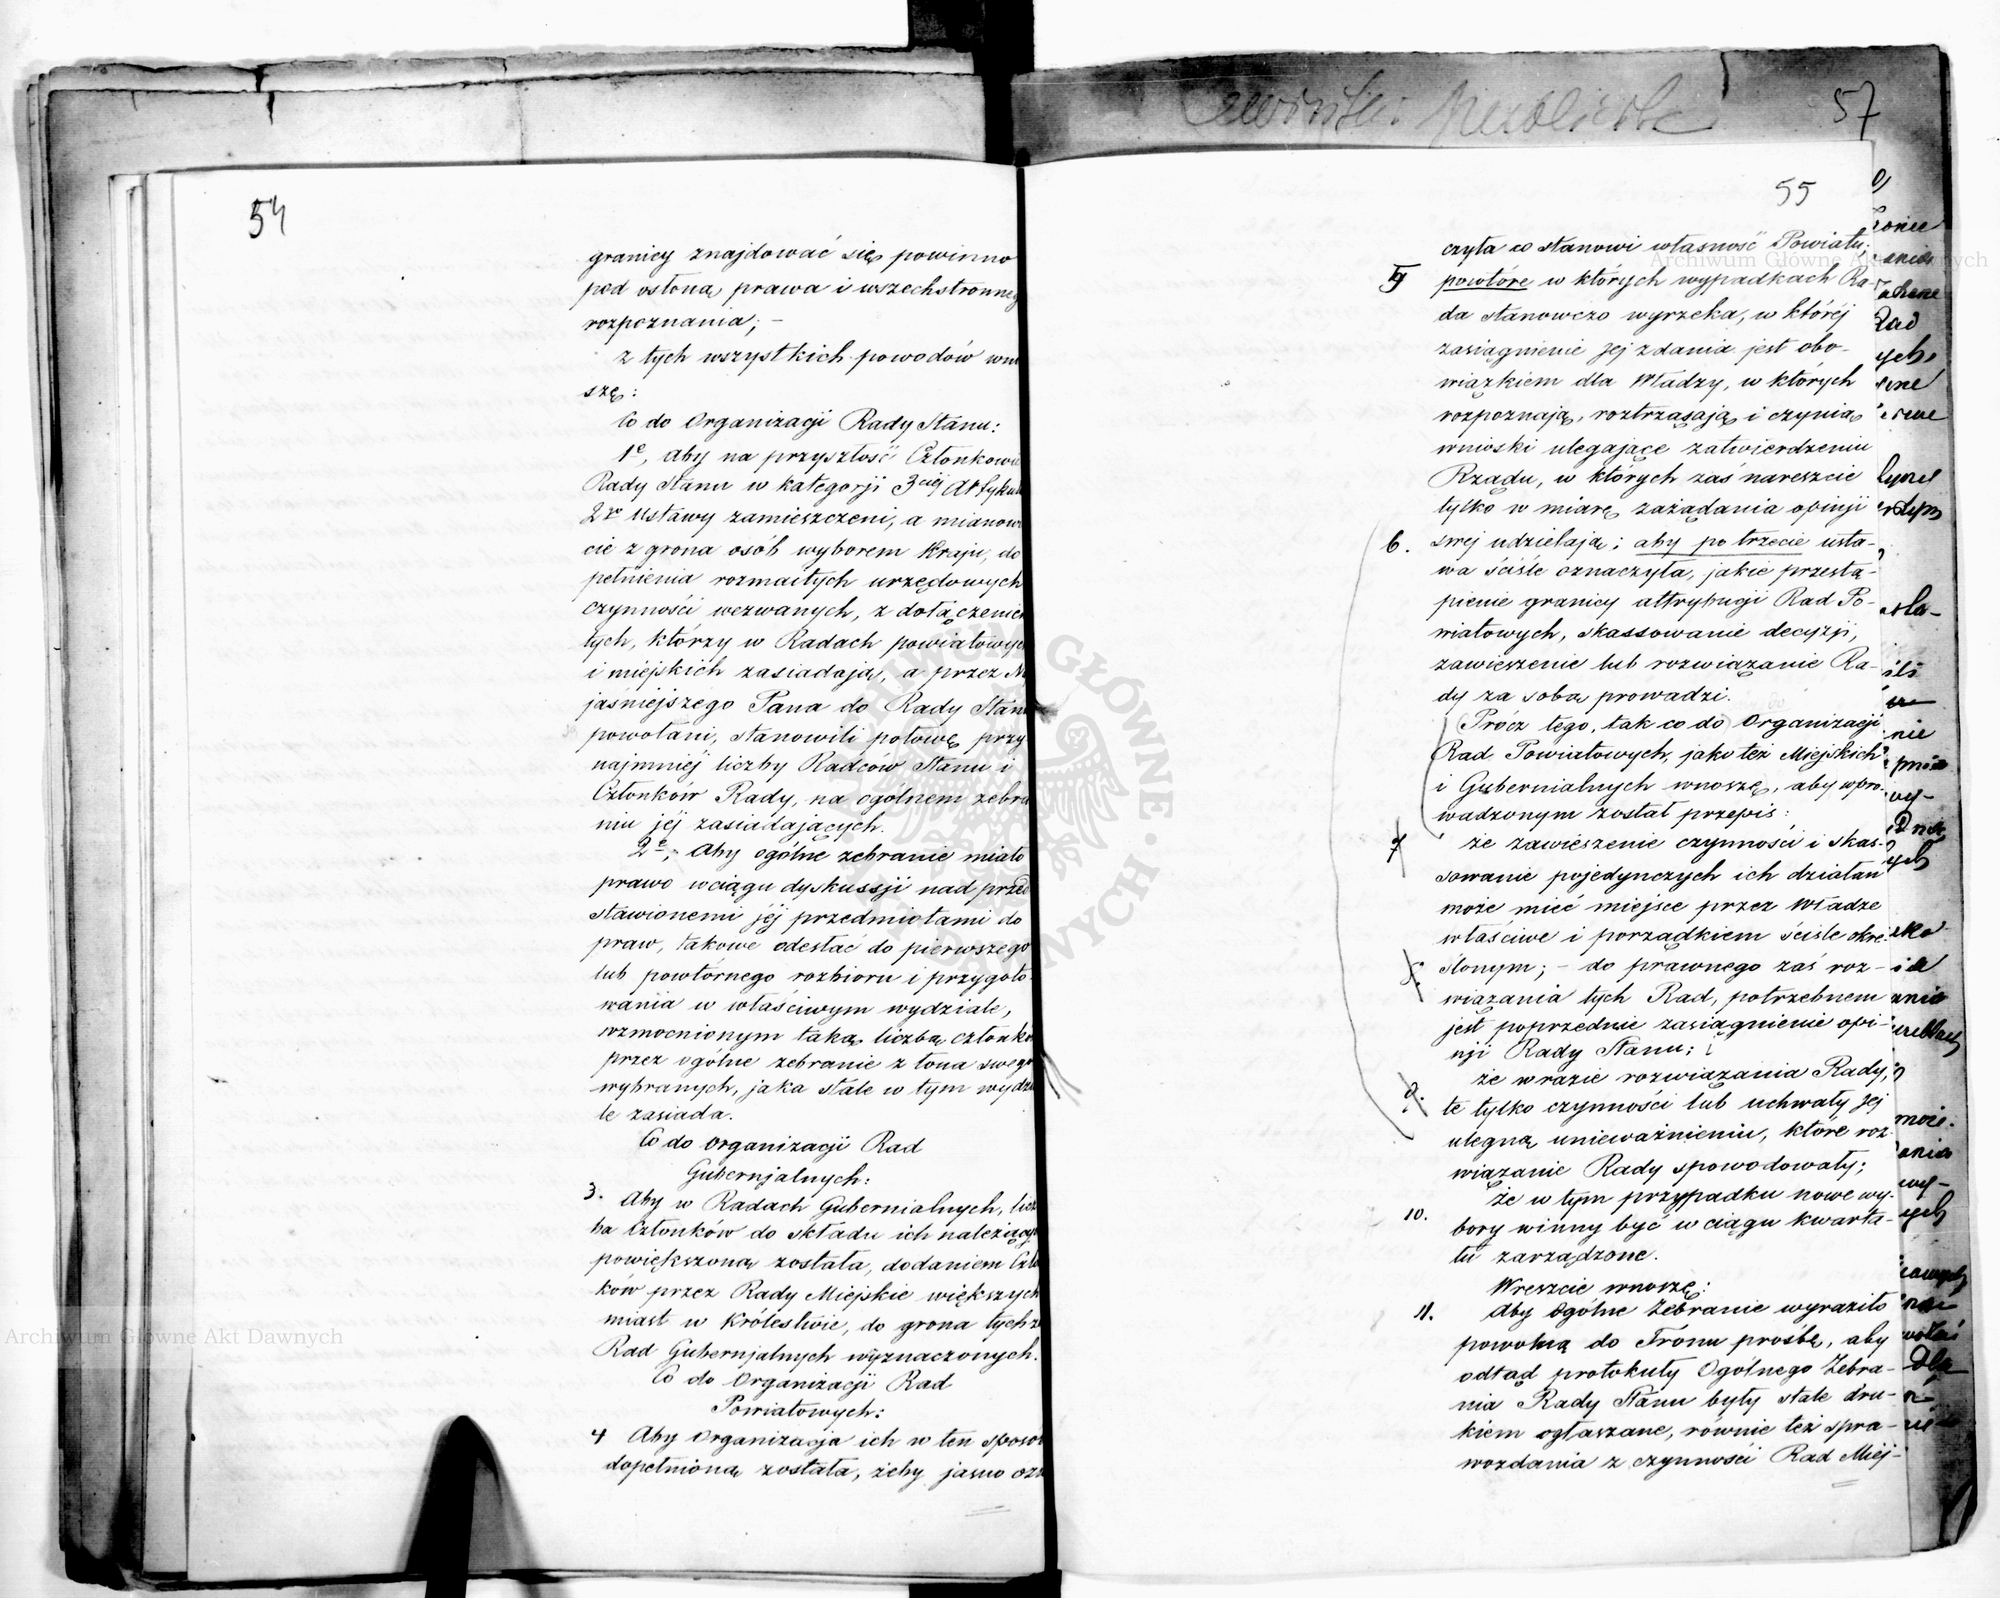 54
granicy znajdować się powinno
pod osłoną prawa i wszechstronnego
rozpoznania; –
z tych wszystkich powodów wno
szę:
Co do Organizacji Rady Stanu:
1e, aby na przyszłość Członkowie
Rady Stanu w kategorji 3ciéj Artykułu
2go Ustawy zamieszczeni, a mianowi
cie z grona osób wyborem Kraju, do
pełnienia rozmaitych urzędowych
czynności wezwanych, z dołączeniem
tych, którzy w Radach powiatowych
i miejskich zasiadają, a przez Na
jaśniejszego Pana do Rady Stanu
powołani, stanowili połowę przy
najmniéj liczby Radców Stanu i
Członków Rady, na ogólnem zebra
niu jéj zasiadających.
2e, Aby ogólne zebranie miało
prawo w ciągu dyskussji nad przed
stawionemi jéj przedmiotami do
praw, takowe odesłać do pierwszego
lub powtórnego rozbioru i przygoto
wania w właściwym wydziale,
wzmocnionym taką liczbą członków
przez ogólne zebranie z łona swego
wybranych, jaka stale w tym wydzia
le zasiada.
Co do Organizacji Rad
Gubernjalnych:
3. Aby w Radach Gubernialnych, licz
ba Członków do składu ich należących
powiększoną została, dodaniem Człon
ków przez Rady Miejskie większych
miast w Królestwie, do grona tychże
Rad Gubernjalnych wyznaczonych.
Co do Organizacji Rad
Powiatowych:
4 Aby Organizacja ich w ten sposób
dopełnioną została, żeby jasno ozna
57
55
czyła co stanowi własność Powiatu;
powtóre w których wypadkach Ra-
da stanowczo wyrzeka, w któréj
zasiągnienie jej zdania jest obo-
wiązkiem dla Władzy, w których
rozpoznają, roztrząsają i czynią
wnioski ulegające zatwierdzeniu
Rządu, w których zaś nareszcie
tylko w miarę zażądania opinji
6. swej udzielają; aby po trzecie usta-
wa ściśle oznaczyła, jakie przestą-
pienie granicy attrybucji Rad Po-
wiatowych, skassowanie decyzji,
zawieszenie lub rozwiązanie Ra-
dy za sobą prowadzi.
Prócz tego, tak co do Organizacji
Rad Powiatowych, jako też Miejskich
i Gubernialnych wnoszę, aby wpro-
wadzonym został przepis:
7 że zawieszenie czynności i skas-
sowanie pojedynczych ich działań
może mieć miejsce przez Władze
właściwe i porządkiem ściśle okre-
8. ślonym; – do prawnego zaś roz-
wiązania tych Rad, potrzebnem
jest poprzednie zasiągnienie opi-
nji Rady Stanu;
że w razie rozwiązania Rady,
9. te tylko czynności lub uchwały jej
ulegną unieważnieniu, które roz-
wiązanie Rady spowodowały;
że w tym przypadku nowe wy-
10. bory winny być w ciągu kwarta-
łu zarządzone.
Wreszcie wnoszę:
11. Aby Ogólne Zebranie wyraziło
powolną do Tronu prośbę, aby
odtąd protokuły Ogólnego Zebra-
nia Rady Stanu były stale dru-
kiem ogłaszane, równie też spra-
wozdania z czynności Rad Miej-
Archiwum Główne Akt Dawnych
Archiwum Główne Akt Dawnych